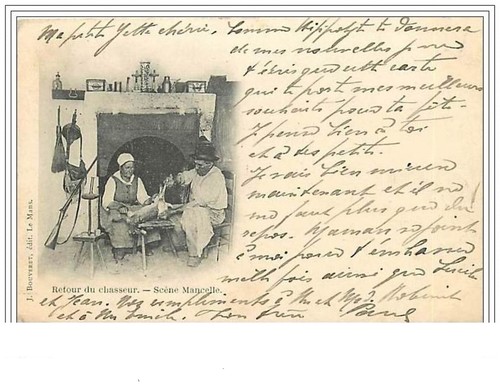 Ma petite Yette chérie. Comme Hippolyte te donnera
de mes nouvelles je ne
t'écris que cette carte
qui te porte mes meilleurs
souhaits pour ta fête.
Je pense bien à toi
et à tes petits.
Je vais bien mieux
maintenant et il ne
me faut plus que du
repos. Maman se joint
à moi pour t'embrasser
mille fois ainsi que Lucile
et Jean. Nos compliments à Mr et Mme
et à Mr Emile. Ton frère Paul
J. BOUVERET, édit. Le Mans.
Retour du chasseur. — Scène Mancelle.